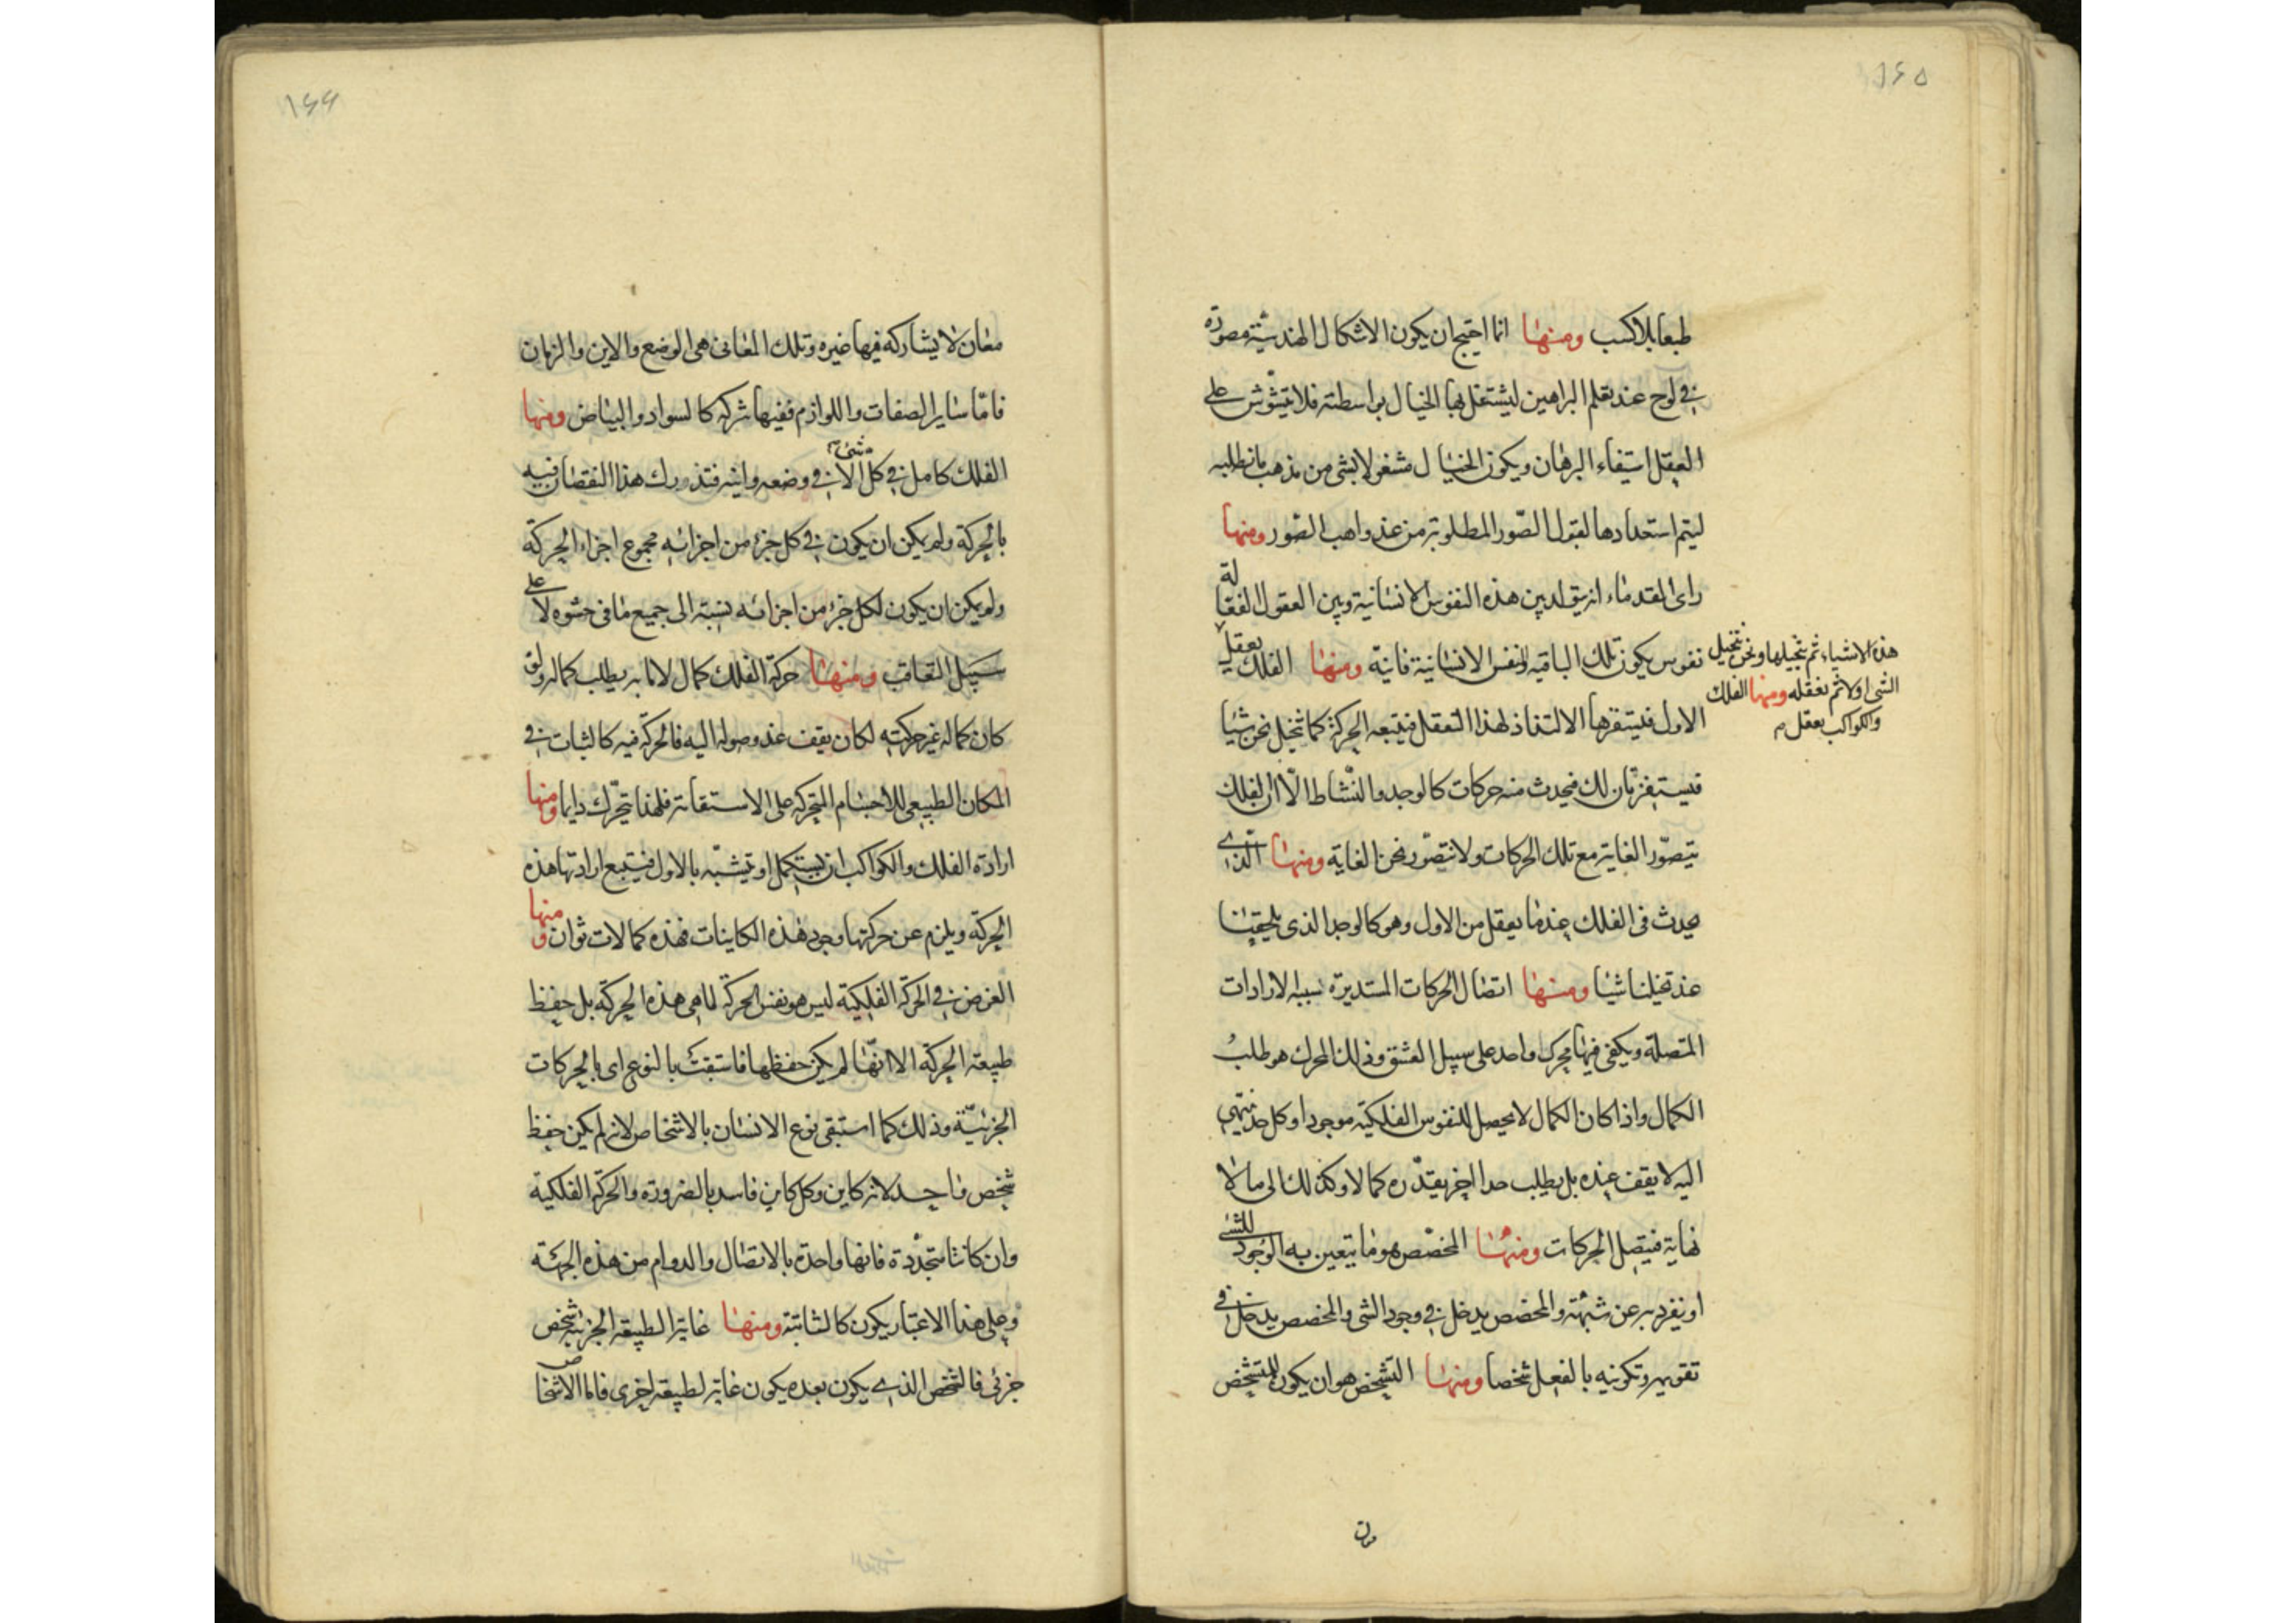 ١٦٥
طبعا بلا كسب ومنها انما احتيج ان يكون الاشكال الهندسية مصورة
في لوح عند تعلم البراهين ليشتغل بها الخيال بواسطته فلا يتشوش على
العقل استيفاء البرهان ويكون الخيال مشغولا بشئ من مذهب ما نطلبه
ليتم استعدادها لقبول الصور المطلوبة من عند واهب الصور ومنها
راى القدماء انه يتولد بين هذه النفوس الانسانية وبين العقول الفعالة
نفوس يكون تلك الباقيه والنفس الانسانية فانية ومنها الفلك يعقل
هذه الاشياء ثم يتخيلها ونحن نتخيل
الشئ اولا ثم نعقله ومنها الفلك
والكواكب يعقل
الاول فيستفزها الالتذاذ لهذا التعقل فيتبعه الحركة كما نتخيل نحن شيئا
فيستفزنا ذلك فيحدث منه حركات كالوجد والنشاط الا ان الفلك
يتصور الغاية مع تلك الحركات ولا نتصور نحن الغاية ومنها الذى
يحدث فى الفلك عندما يعقل من الاول وهو كالوجد الذى يلحقنا
عند تخيلنا شيئا ومنها اتصال الحركات المستديرة سببه الارادات
المتصلة ويكفى فيها محرك واحد على سبيل العشق وذلك المحرك هو طلب
الكمال واذا كان الكمال لا يحصل للنفوس الفلكية موجودا وكل حد ينتهى
اليه لا يقف عنده بل يطلب حدا اخر يقدره كمالا وكذلك الى ما لا
نهاية فيتصل الحركات ومنها المخصص هو ما يتعين به الوجود للشئ
او ينفرد به عن شبهته والمخصص يدخل في وجود الشئ والمخصص يدخل في
تقويمه وتكونيه بالفعل شخصا ومنها التشخص هو ان يكون للمتشخص
١٦٦
معان لا يشاركه فيها غيره وتلك المعانى هى الوضع والاين والزمان
فاما ساير الصفات واللوازم ففيها شركه كالسواد والبياض ومنها
الفلك كامل في كل شئ الا في وضعه واينه فتدورك هذا النقصان فيه
بالحركة ولم يكن ان يكون في كل جزء من اجزائه مجموع اجزاء الحركة
ولم يكن ان يكون لكل جزء من اجزائه نسبة الى جميع ما فى حشوه الا على
سبيل التعاقب ومنها حركة الفلك كمال لا ما به يطلب كماله ولو
كان كماله غير حركته لكان يقف عند وصوله اليه فالحركة فيه كالثبات في
المكان الطبيعى للاجسام المتحركة على الاستقامة فلهذا يتحرك دايما ومنها
ارادة الفلك والكواكب ان يستكمل او يتشبه بالاول فيتبع ارادتها هذه
الحركة ويلزم عن حركتها وجود هذه الكاينات فهذه كمالات ثوان ومنها
الغرض في الحركة الفلكية ليس هو نفس الحركة لما هى هذه الحركة بل حفظ
طبيعة الحركة الا انها لم يكن حفظها فاستبقت بالنوع اى بالحركات
الجزئية وذلك كما استبقى نوع الانسان بالاشخاص لانه لم يكن حفظ
شخص واحد لانه كاين وكل كاين فاسد بالضرورة والحركة الفلكية
وان كانت متجددة فانها واحدة بالاتصال والدوام من هذه الجهة
وعلى هذا الاعتبار يكون كالثابتة ومنها غاية الطبيعة الجزئية شخص
جزئى فالشخص الذى يكون بعده يكون غاية لطبيعة اخرى فاما الاشخاص